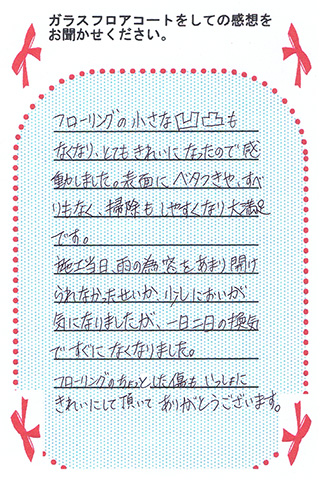 ガラスフロアコートをしての感想を
お聞かせください。
フローリングの小さな凹凸も
なくなり、とてもきれいになったので感
動しました。表面にベタつきや、すべ
りもなく、掃除もしやすくなり大満足
です。
施工当日、雨の為窓をあまり開け
られなかったせいか、少しにおいが
気になりましたが、一日二日の換気
ですぐになくなりました。
フローリングのちょっとした傷もいっしょに
きれいにして頂いてありがとうございます。